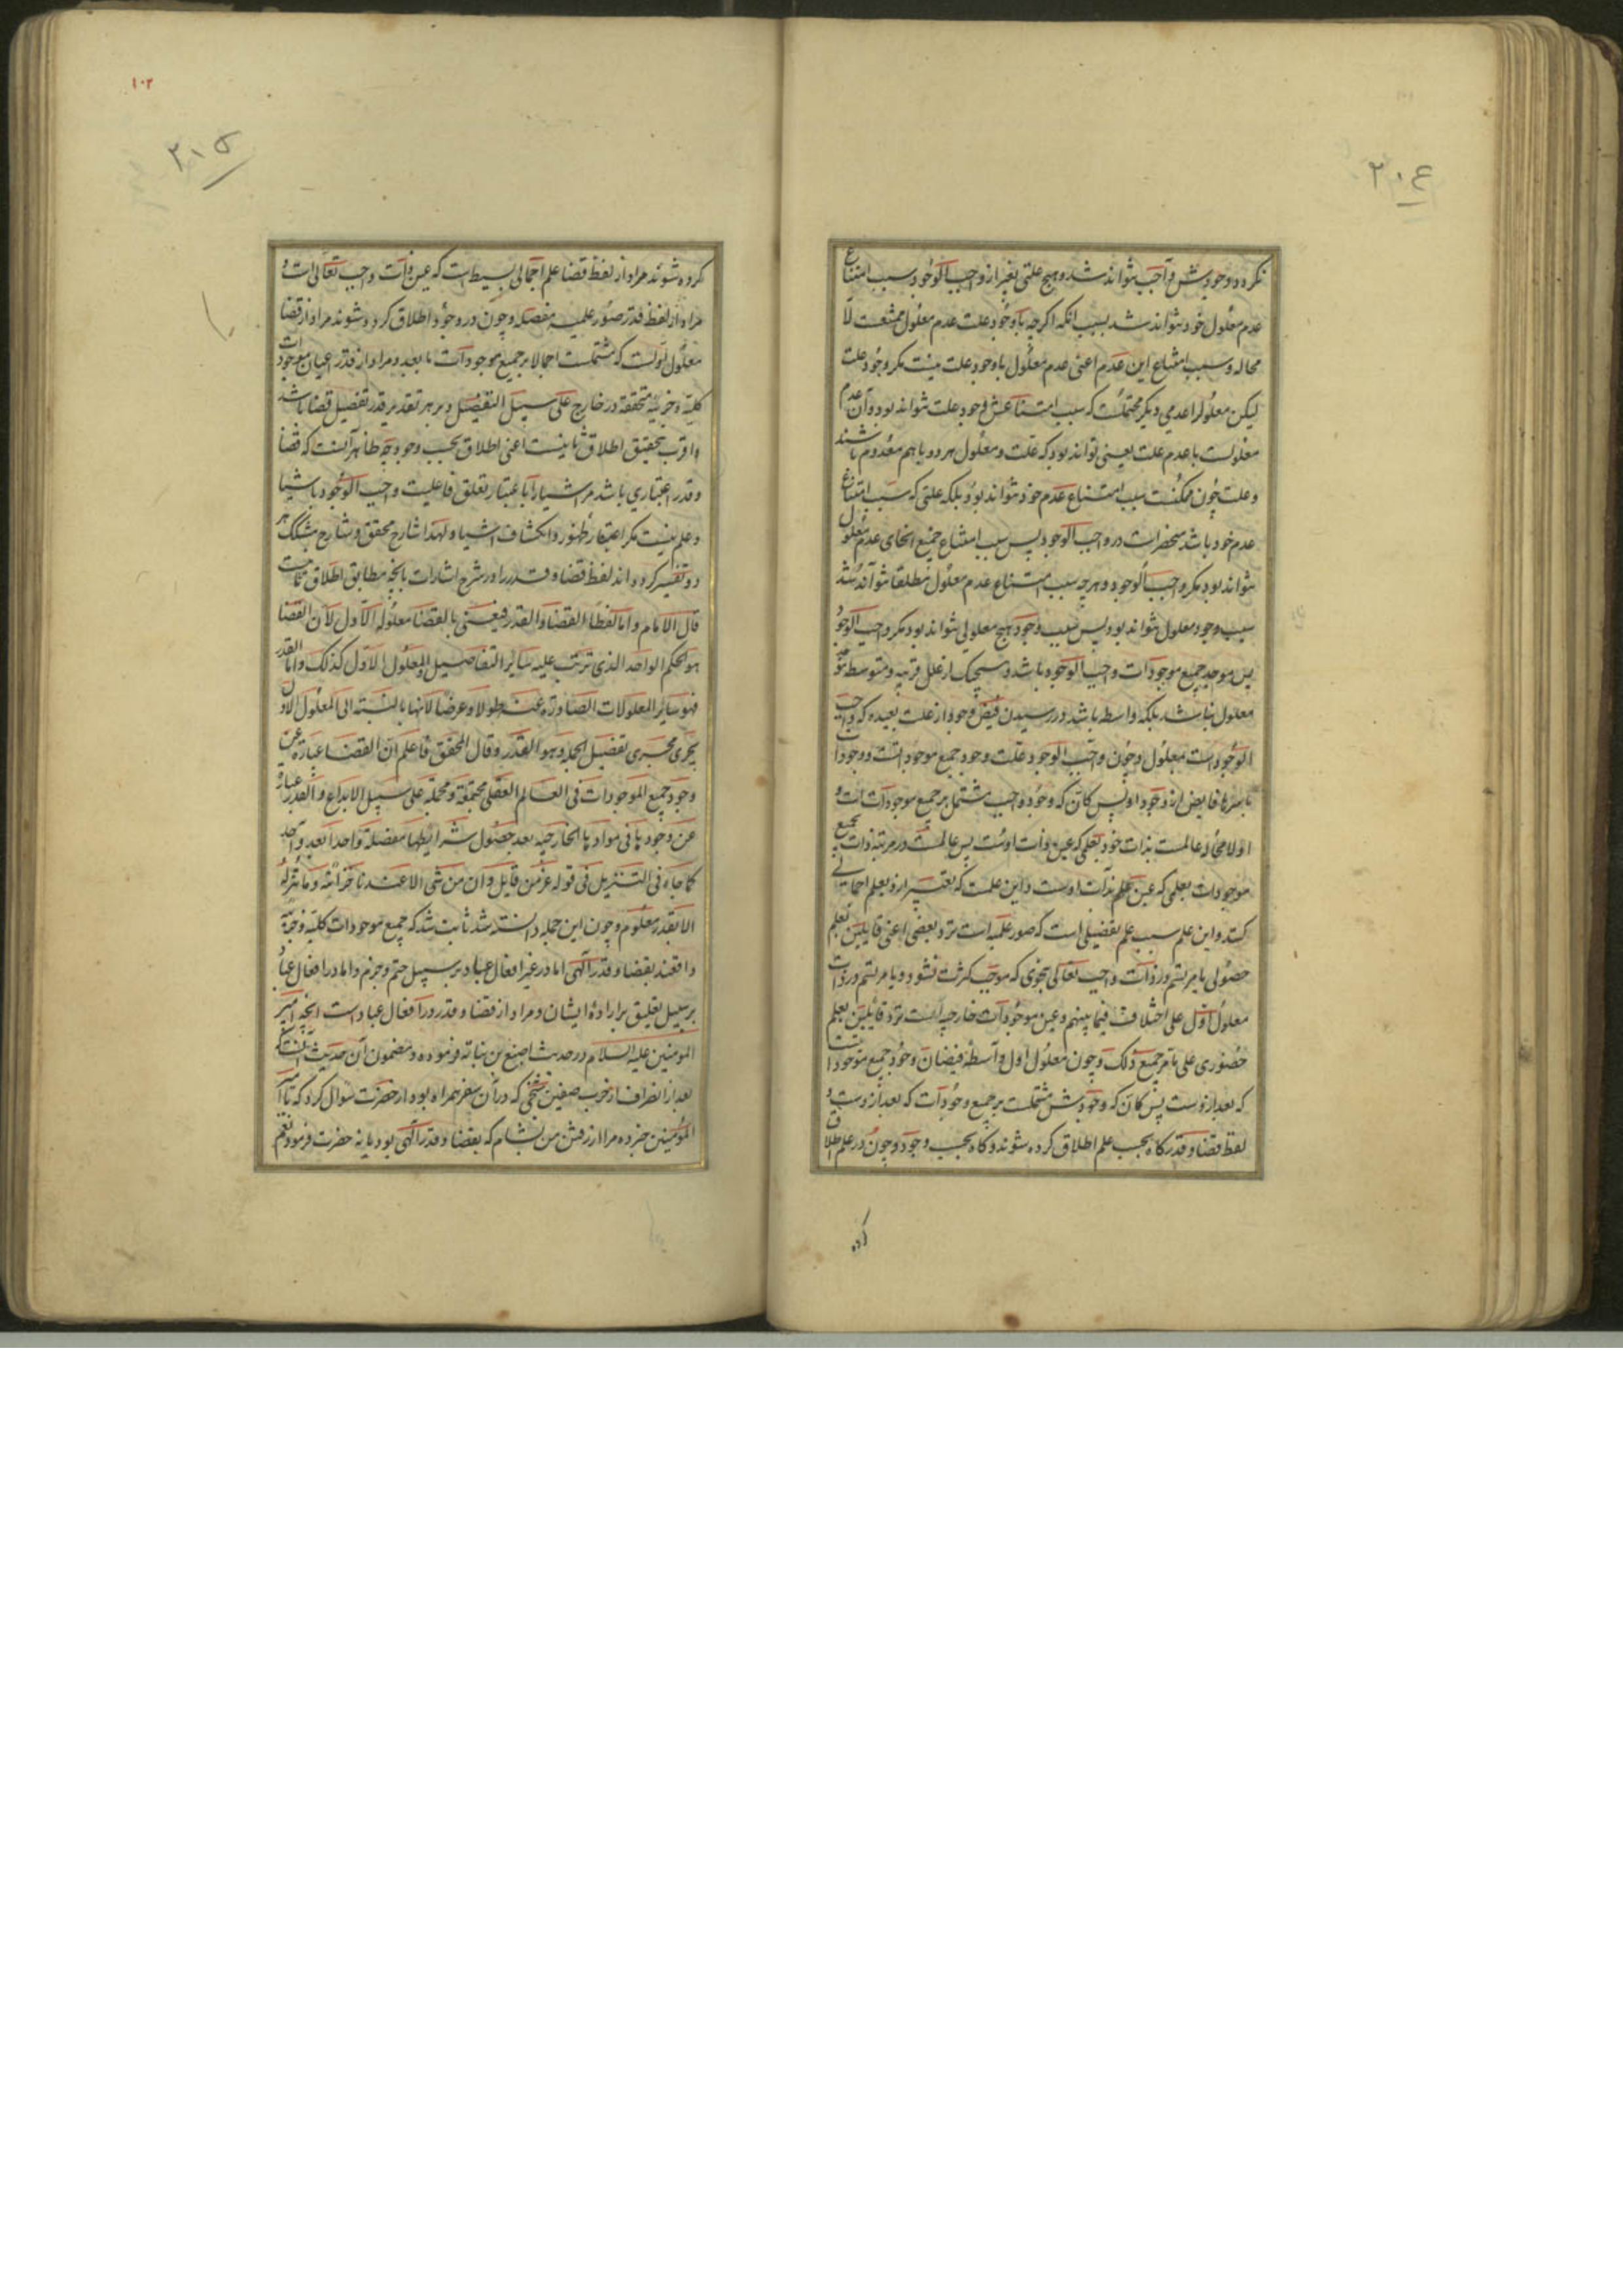 ۲۰۴
نکردد وجودش واجب نتواند شد و هیچ علتی بغیر از واجب الوجود سبب امتناع
عدم معلول خود نتواند شد بسبب آنکه اگرچه با وجود علت عدم معلول ممتنعست لا
محاله و سبب امتناع این عدم اعنی عدم معلول با وجود علت نیست مکر وجود علت
لیکن معلول را عدمی دیکر محتملست که سبب امتناعش وجود علت نتواند بود و آن عدم
معلولست با عدم علت یعنی تواند بود که علت و معلول هر دو با هم معدوم باشند
و علت چون ممکنست سبب امتناع عدم خود نتواند بود بلکه علتی که سبب امتناع
عدم خود باشد منحصر است در واجب الوجود پس سبب امتناع جمیع انحای عدم معلول
نتواند بود مکر واجب الوجود و هرچه سبب امتناع عدم معلول مطلقا نتواند شد
سبب وجود معلول نتواند بود پس سبب وجود هیچ معلولی نتواند بود مکر واجب الوجود
پس موجد جمیع موجودات واجب الوجود باشد و هیچیک از علل قریبه و متوسطه موجد
معلول نباشد بلکه واسطه باشد در رسیدن فیض وجود از علت بعیده که واجب
الوجودست بمعلول و چون واجب الوجود علت وجود جمیع موجوداتست و وجودات
باسرها فایض از وجود او پس کان که وجود واجب مشتمل بر جمیع موجودات است و
اولا عالمست بذات خود بعلمی که عین ذات اوست پس عالمست در مرتبه ذات بجمیع
موجودات بعلمی که عین علم بذات اوست و این علمست که تعبیر ازو بعلم اجمالی
کنند و این علم سبب علم تفصیلی است که صور علمیه است نزد بعضی اعنی قایلین بعلم
حصولی یا مرتسم در ذات واجب تعالی بنحوی که موجب کثرت نشود و یا مرتسم در ذات
معلول اول علی اختلاف فیما بینهم و عین موجودات خارجیه است نزد قایلین بعلم
حضوری علی ما مر جمیع ذلک و چون معلول اول واسطه فیضان وجود جمیع موجودات
که بعد ازوست پس کان که وجودش مشتملست بر جمیع وجودات که بعد ازوست و
لفظ قضا و قدر کاه بحسب علم اطلاق کرده شوند و کاه بحسب وجود و چون در علم اطلاق
کرده
۱۰۲
۲۰۵
کرده شوند مراد از لفظ قضا علم اجمالی بسیط است که عین ذات واجب تعالی است و
مراد از لفظ قدر صور علمیه مفصله و چون در وجود اطلاق کرده شوند مراد از قضا
معلول اولست که مشتملست اجمالا بر جمیع موجودات ما بعد و مراد از قدر اعیان موجودات
کلیه و جزئیه متحققه در خارج علی سبیل التفصیل و بر هر تقدیر قدر تفصیل قضا باشد
و اقرب بتحقیق اطلاق ثانیست اعنی اطلاق بحسب وجود چه ظاهر آنست که قضا
و قدر اعتباری باشد مر اشیا را باعتبار تعلق فاعلیت واجب الوجود باشیا
و علم نیست مکر اعتبار ظهور و انکشاف اشیا و لهذا شارح محقق و شارح مشکک هر
دو تفسیر کرده اند لفظ قضا و قدر را در شرح اشارات بآنچه مطابق اطلاق ثانیست
قال الامام و اما لفظا القضا و القدر فیعنی بالقضا معلوله الاول لان القضا
هو الحکم الواحد الذی ترتب علیه سایر التفاصیل و المعلول الاول کذلک و اما القدر
فهو سایر المعلولات الصادرة عنه طولا و عرضا لانها بالنسبه الی المعلول الاول
یجری مجری تفصیل الجمله و هو القدر و قال المحقق فاعلم ان القضا عبارة عن
وجود جمیع الموجودات فی العالم العقلی مجتمعة و مجملة علی سبیل الابداع و القدر عبارة
عن وجودها فی موادها الخارجیه بعد حصول شرایطها مفصلة واحدا بعد واحد
کما جاء فی التنزیل فی قوله عز من قایل و ان من شی الا عندنا خزائنه و ما ننزله
الا بقدر معلوم و چون این جمله دانسته شد ثابت شد که جمیع موجودات کلیه و جزئیه
واقعند بقضا و قدر الهی اما در غیر افعال عباد بر سبیل حتم و جزم و اما در افعال عباد
بر سبیل تعلیق بر اراده ایشان و مراد از قضا و قدر در افعال عباد است آنچه امیر
المومنین علیه السلام در حدیث اصبغ بن نباته فرموده و مضمون آن حدیث آنست که
بعد از انصراف از حرب صفین شخصی که در آن سفر همراه بود از حضرت سوال کرد که یا امیر
المؤمنین خبر ده مرا از رفتن من بشام که بقضا و قدر الهی بود یا نه حضرت فرمود نعم